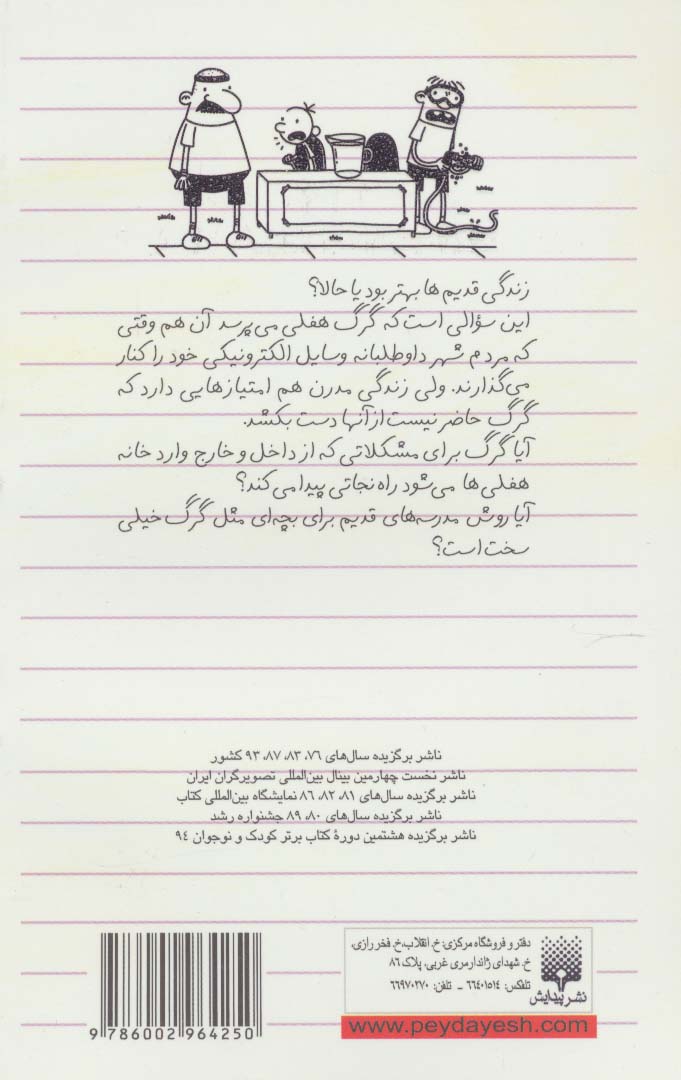 زندگی قدیم ها بهتر بود یا حالا؟
این سؤالی است که گرگ هفلی می‌پرسد آن هم وقتی
که مردم شهر داوطلبانه وسایل الکترونیکی خود را کنار
می‌گذارند. ولی زندگی مدرن هم امتیازهایی دارد که
گرگ حاضر نیست از آنها دست بکشد.
آیا گرگ برای مشکلاتی که از داخل و خارج وارد خانه
هفلی ها می‌شود راه نجاتی پیدا می کند؟
آیا روش مدرسه‌های قدیم برای بچه‌ای مثل گرگ خیلی
سخت است؟
ناشر برگزیده سال‌های ۷۶، ۸۳، ۸۷، ۹۳ کشور
ناشر نخست چهارمین بینال بین‌المللی تصویرگران ایران
ناشر برگزیده سال‌های ۸۱، ۸۲، ۸۶ نمایشگاه بین‌المللی کتاب
ناشر برگزیده سال‌های ۸۰، ۸۹ جشنواره رشد
ناشر برگزیده هشتمین دورهٔ کتاب برتر کودک و نوجوان ۹۴
دفتر و فروشگاه مرکزی: خ. انقلاب، خ. فخر رازی،
خ. شهدای ژاندارمری غربی، پلاک ۸۶
تلفکس: ۶۶۴۰۱۵۱۴ - تلفن: ۶۶۹۷۰۲۷۰
نشر پیدایش
www.peydayesh.com
9 786002 964250